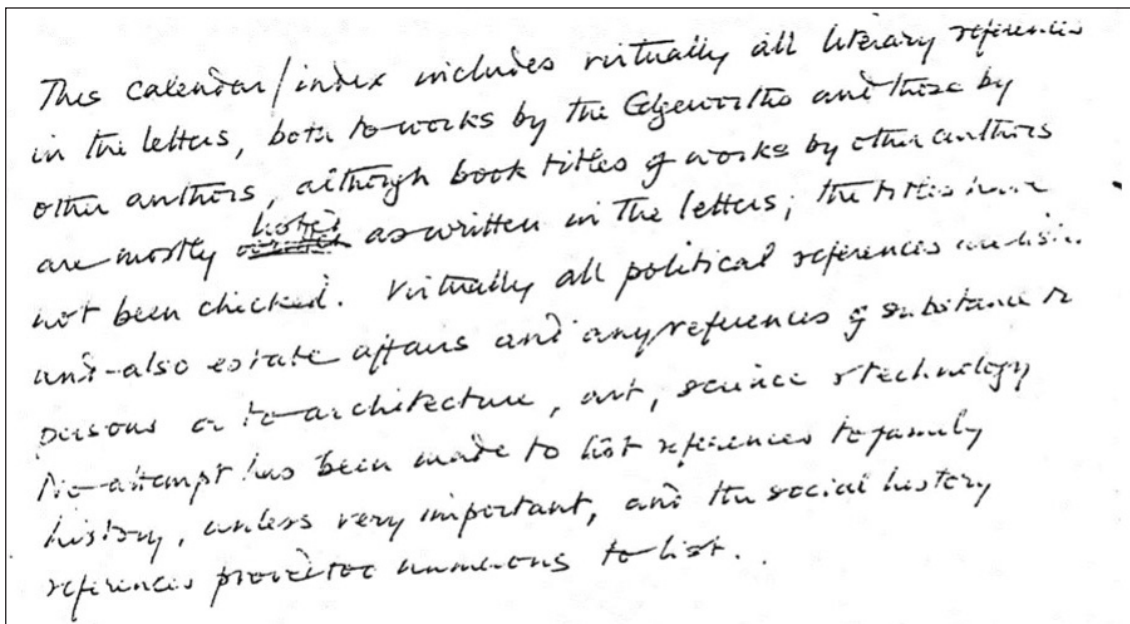 This calendar/index includes virtually all literary references
in the letters, both to works by the Edgeworths and those by
other authors, although book titles of works by other authors
are mostly listed as written in the letters; the titles have
not been checked. Virtually all political references are
and also estate affairs and any references of substance to
persons or to architecture, art, science & technology
No attempt has been made to list references to family
history, unless very important, and the social history
references proved too numerous to list.